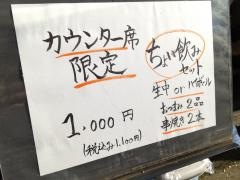 カウンター席
限定
1,000円
(税込み1,100円)
ちょい飲み
セット
生中 or ハイボール
おつまみ 2品
串焼き 2本